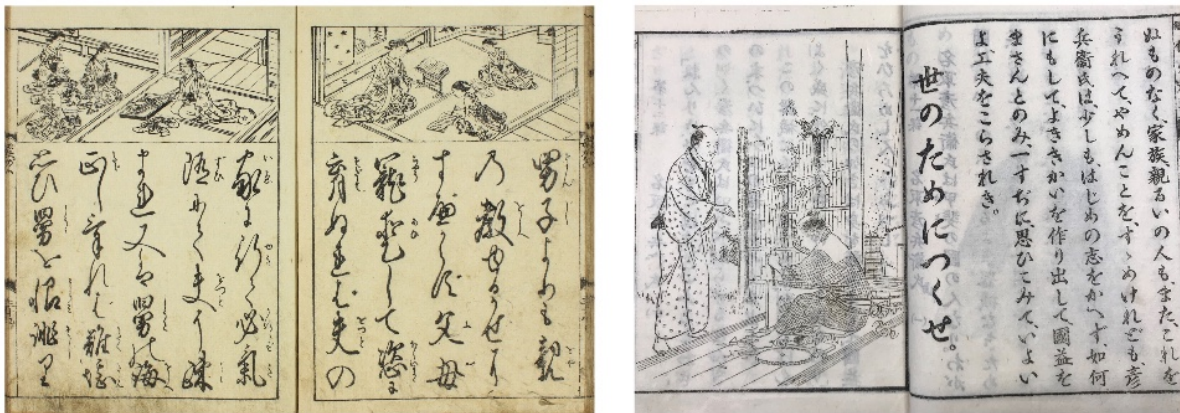 男子よりも親
の教ゆるがせに
すべからず父母
寵愛して恣に
育ぬれば夫の
家に行て必氣
随にて夫に疎
まれ又は舅の誨
正しければ難堪
思ひ舅を恨誹り
ぬものなく、家族、親るいの人も、また、これを
うれへて、やめんことを、すゝめけれども、彦
兵衞氏は、少しも、はじめの志をかへず、如何
にもして、よききかいを作り出して、國益を
まさんとのみ、一すぢに思ひてゐて、いよい
よ工夫をこらされき。
世のためにつくせ。